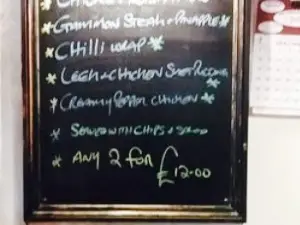 * GAMMON STEAK & PINEAPPLE *
* CHILLI WRAP *
* LEEK & CHICKEN
* CREAMY PEPPER CHICKEN *
* SERVED WITH CHIPS & SALAD
* ANY 2 FOR £12.00